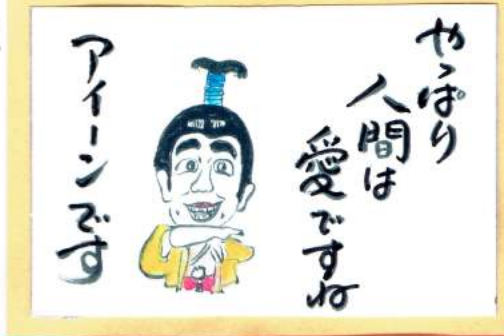 やっぱり
人間は
愛ですね
アイーンです